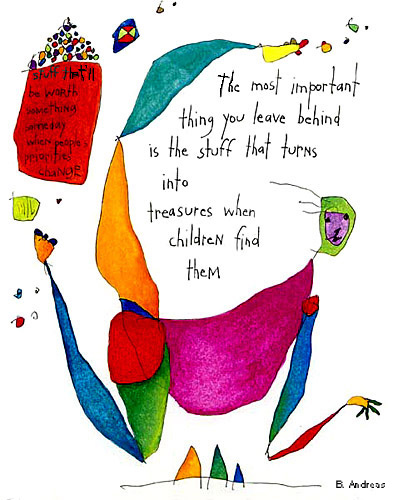 stuff that'll
be worth
something
someday
when people's
priorities
change
The most important
thing you leave behind
is the stuff that turns
into
treasures when
children find
them
B. Andreas